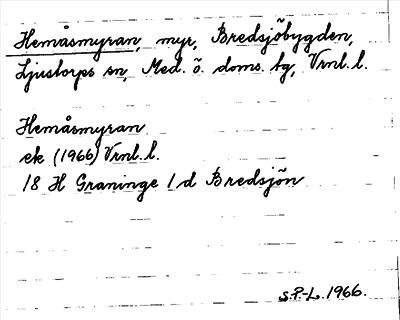 Hemåsmyran, myr, Bredsjöbygden,
Ljustorps sn, Med. ö. doms. tg, Vrnl. l.
Hemåsmyran
ek (1966) Vrnl. l.
18 H Graninge 1 d Bredsjön
S.P-L. 1966.